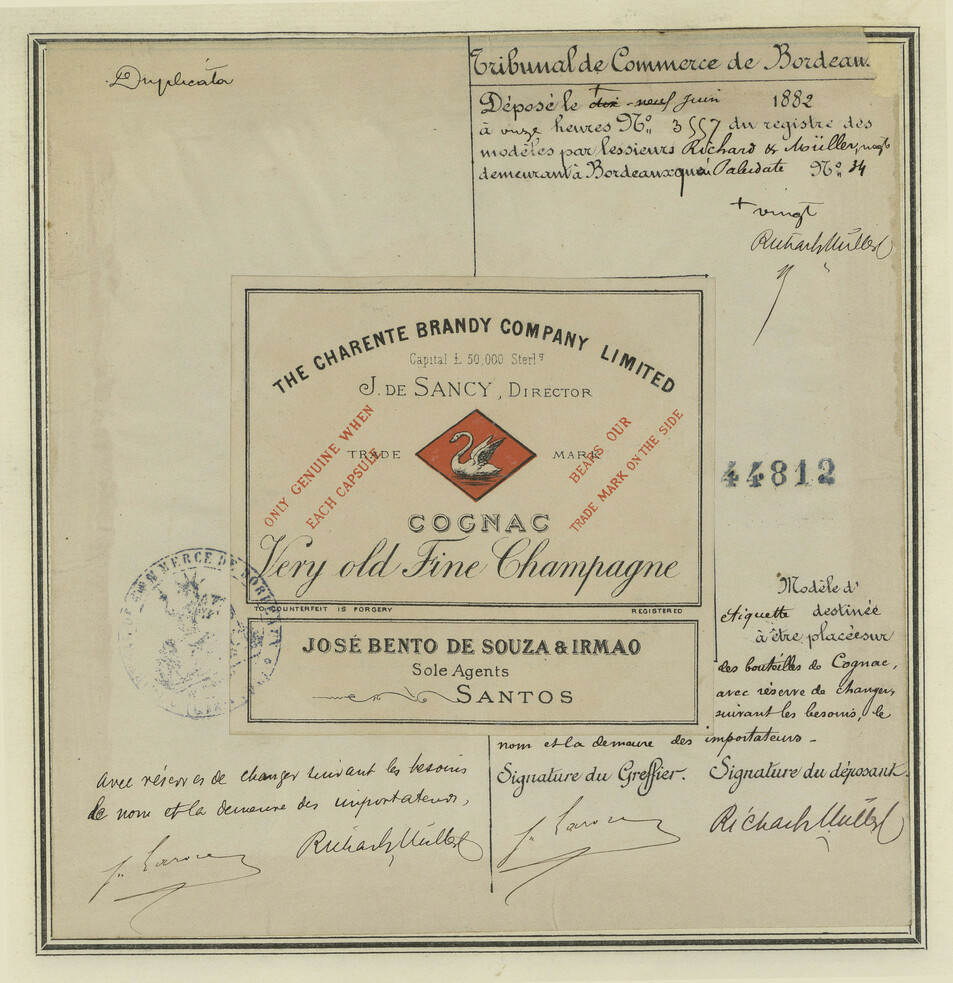 Duplicata
Tribunal de Commerce de Bordeau
Déposé le + dix-neuf Juin 1882
à onze heures No. 3557 du registre des
modèles par les sieurs Richard & Müller, negts
demeurant à Bordeaux quai Paludate No. 34
+ vingt
Richard & Müller
THE CHARENTE BRANDY COMPANY LIMITED
Capital £ 50,000 Sterlg
J. DE SANCY, DIRECTOR
ONLY GENUINE WHEN
EACH CAPSULE
BEARS OUR
TRADE MARK ON THE SIDE
TRADE MARK
44812
COGNAC
Very old Fine Champagne
TO COUNTERFEIT IS FORGERY REGISTERED
JOSÉ BENTO DE SOUZA & IRMAO
Sole Agents
SANTOS
COMMERCE DE BORDEAUX
Modèle d'
étiquette destinée
à être placée sur
des bouteilles de Cognac,
avec réserve de changer,
suivant les besoins, le
nom et la demeure des importateurs.
avec réserves de changer suivant les besoins
le nom et la demeure des importateurs,
Richard & Müller
Signature du Greffier. Signature du déposant.
Richard & Müller